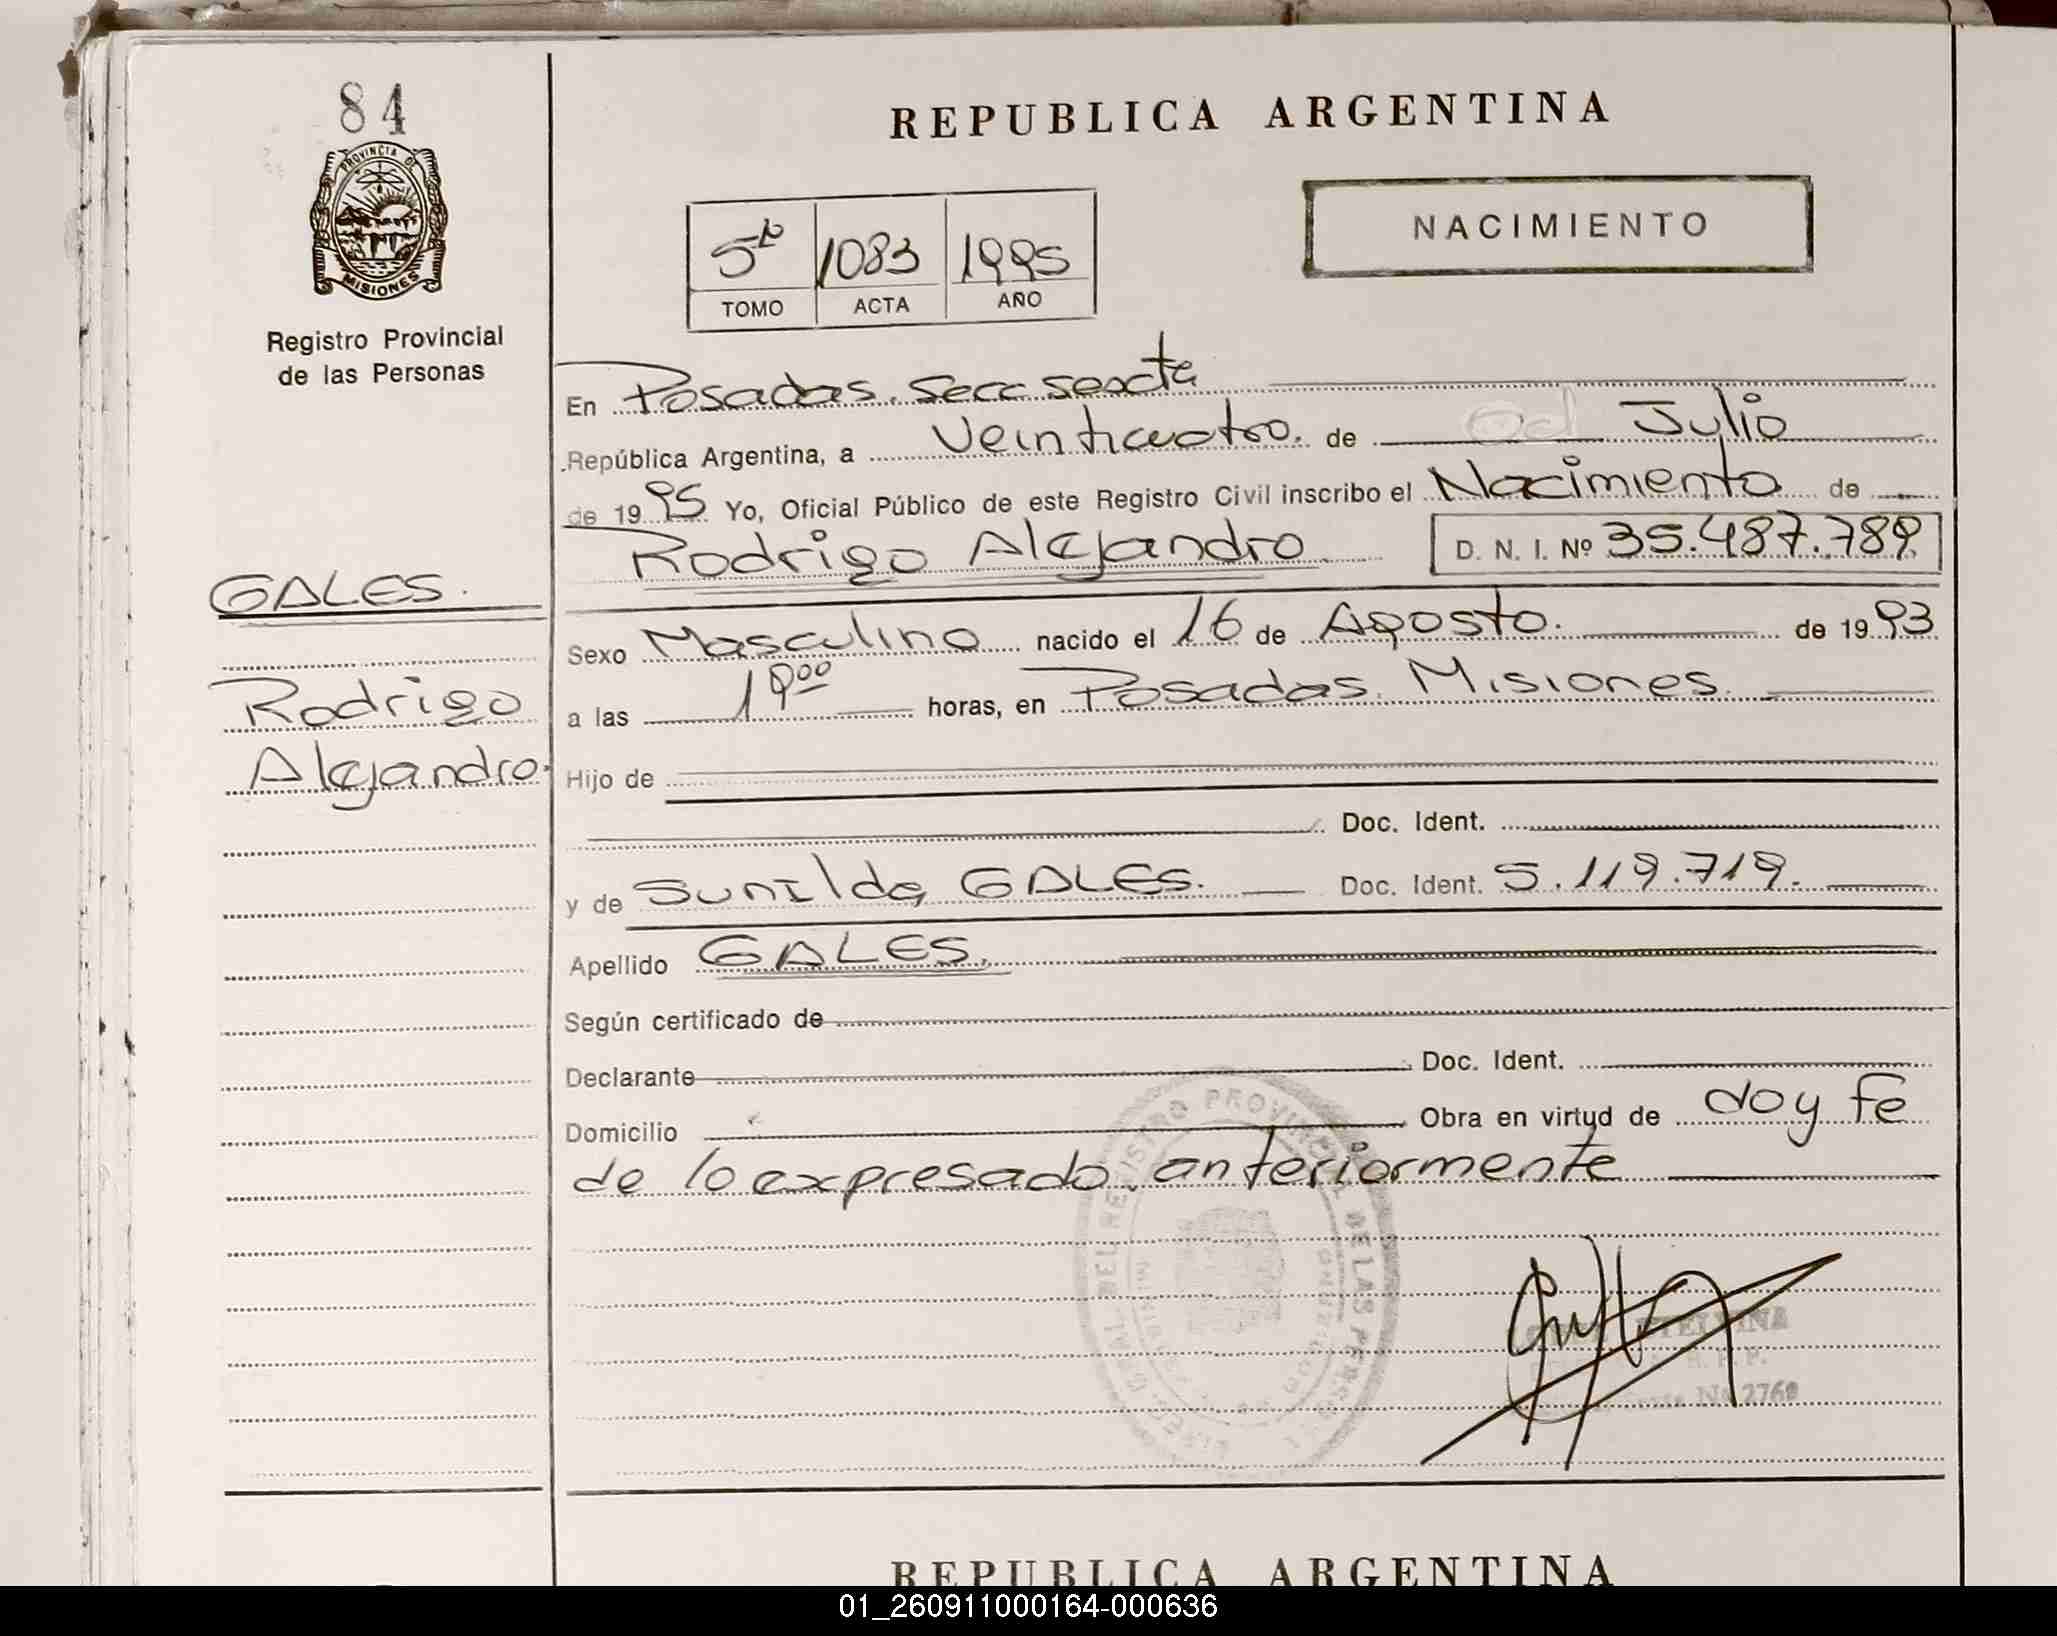 84
PROVINCIA DE
MISIONES
Registro Provincial
de las Personas
GALES.
Rodrigo
Alejandro.
REPUBLICA ARGENTINA
NACIMIENTO
5to 1083 1995
TOMO ACTA AÑO
En Posadas. Secc sexta
República Argentina, a Veinticuatro. de Julio
de 1995 Yo, Oficial Público de este Registro Civil inscribo el Nacimiento de
Rodrigo Alejandro D. N. I. Nº 35.487.789
Sexo Masculino nacido el 16 de Agosto. de 1993
a las 1900 horas, en Posadas. Misiones.
Hijo de
Doc. Ident.
y de Sunilda GALES. Doc. Ident. 5.119.719.
Apellido GALES.
Según certificado de
Declarante Doc. Ident.
Domicilio Obra en virtud de doy fe
de lo expresado anteriormente
GRAL. DEL REGISTRO PROVINCIAL DE LAS PERSONAS
R. P. P.
REPUBLICA ARGENTINA
01_260911000164-000636